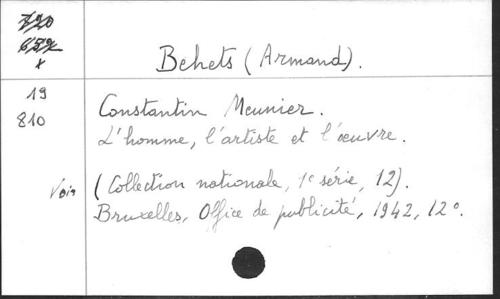 Behets (Armand).
19
810
Constantin Meunier.
L'homme, l'artiste et l'œuvre.
Voir
(Collection nationale, 1e série, 12).
Bruxelles, Office de publicité, 1942, 12°.